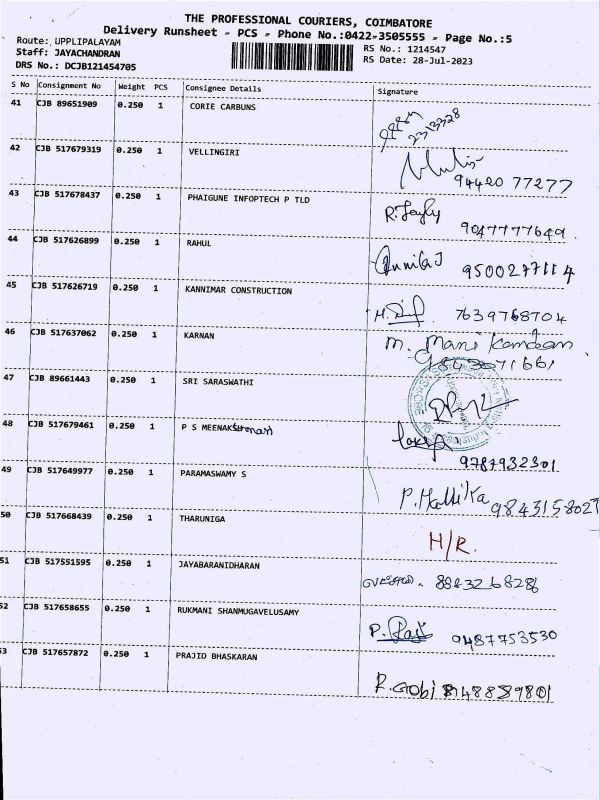 THE PROFESSIONAL COURIERS, COIMBATORE
Delivery Runsheet - PCS - Phone No.:0422-3505555 - Page No.:5
Route: UPPLIPALAYAM
RS No.: 1214547
Staff: JAYACHANDRAN
RS Date: 28-Jul-2023
DRS No.: DCJB121454705
S No Consignment No Weight PCS Consignee Details Signature
41 CJB 89651909 0.250 1 CORIE CARBUNS
2313328
42 CJB 517679319 0.250 1 VELLINGIRI
94420 77277
43 CJB 517678437 0.250 1 PHAIGUNE INFOPTECH P TLD
9047777649
44 CJB 517626899 0.250 1 RAHUL
9500277114
45 CJB 517626719 0.250 1 KANNIMAR CONSTRUCTION
7639768704
46 CJB 517637062 0.250 1 KARNAN
M. Mani Kandan
47 CJB 89661443 1 SRI SARASWATHI
0.250
48 CJB 517679461 0.250 1 P S MEENAKSHI
9787932301
49 CJB 517649977 0.250 1 PARAMASWAMY S
P. Mallika 9843158027
50 CJB 517668439 0.250 1 THARUNIGA
H/R.
51 CJB 517551595 0.250 1 JAYABARANIDHARAN
52 CJB 517658655 0.250 1 RUKMANI SHANMUGAVELUSAMY
P. Raji 9487753530
53 CJB 517657872 0.250 1 PRAJID BHASKARAN
R. Gobi